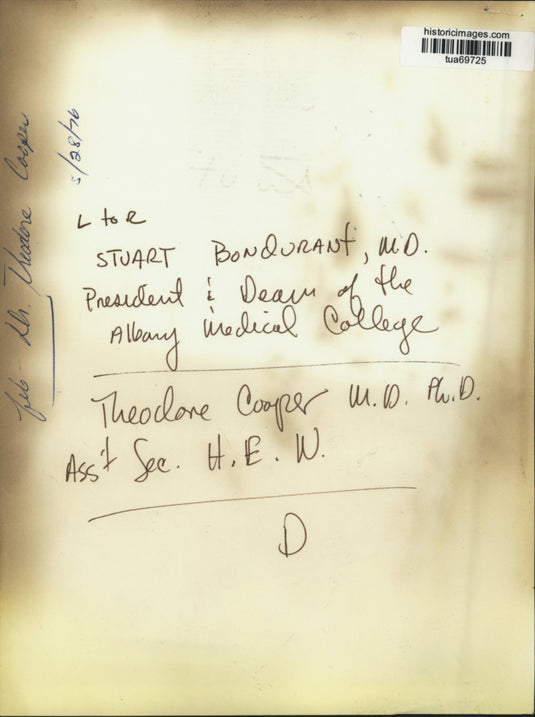 historicimages.com
tua69725
5/28/76
Dr. Theodore Cooper
L to R
STUART BONDURANT, M.D.
President & Dean of the
Albany Medical College
Theodore Cooper M.D. Ph.D.
Ass't Sec. H.E.W.
D